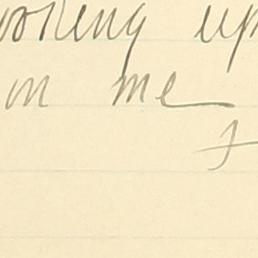 ooking up
on me